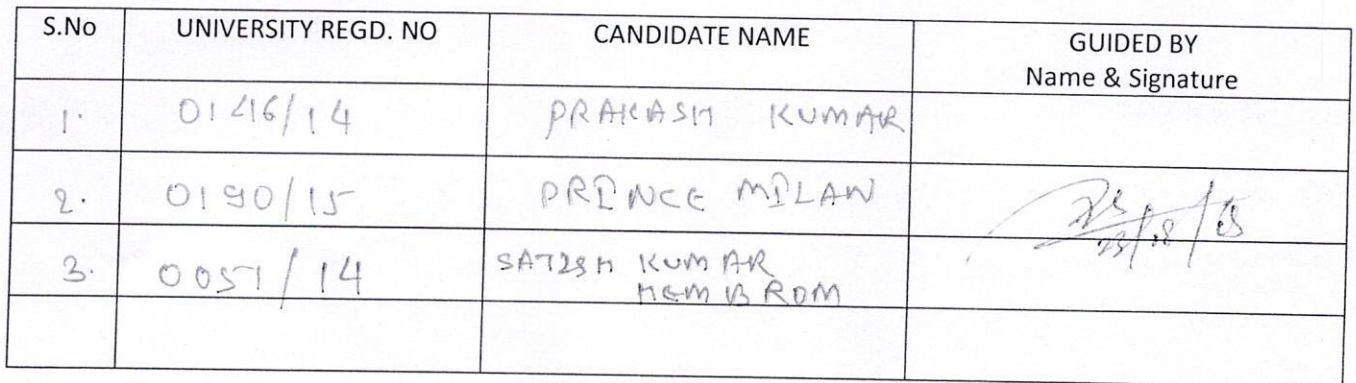 S.No UNIVERSITY REGD. NO CANDIDATE NAME GUIDED BY
Name & Signature
1. 0146/14 PRAKASH KUMAR
2. 0190/15 PRINCE MILAN
3. 0057/14 SATISH KUMAR
HEMBROM